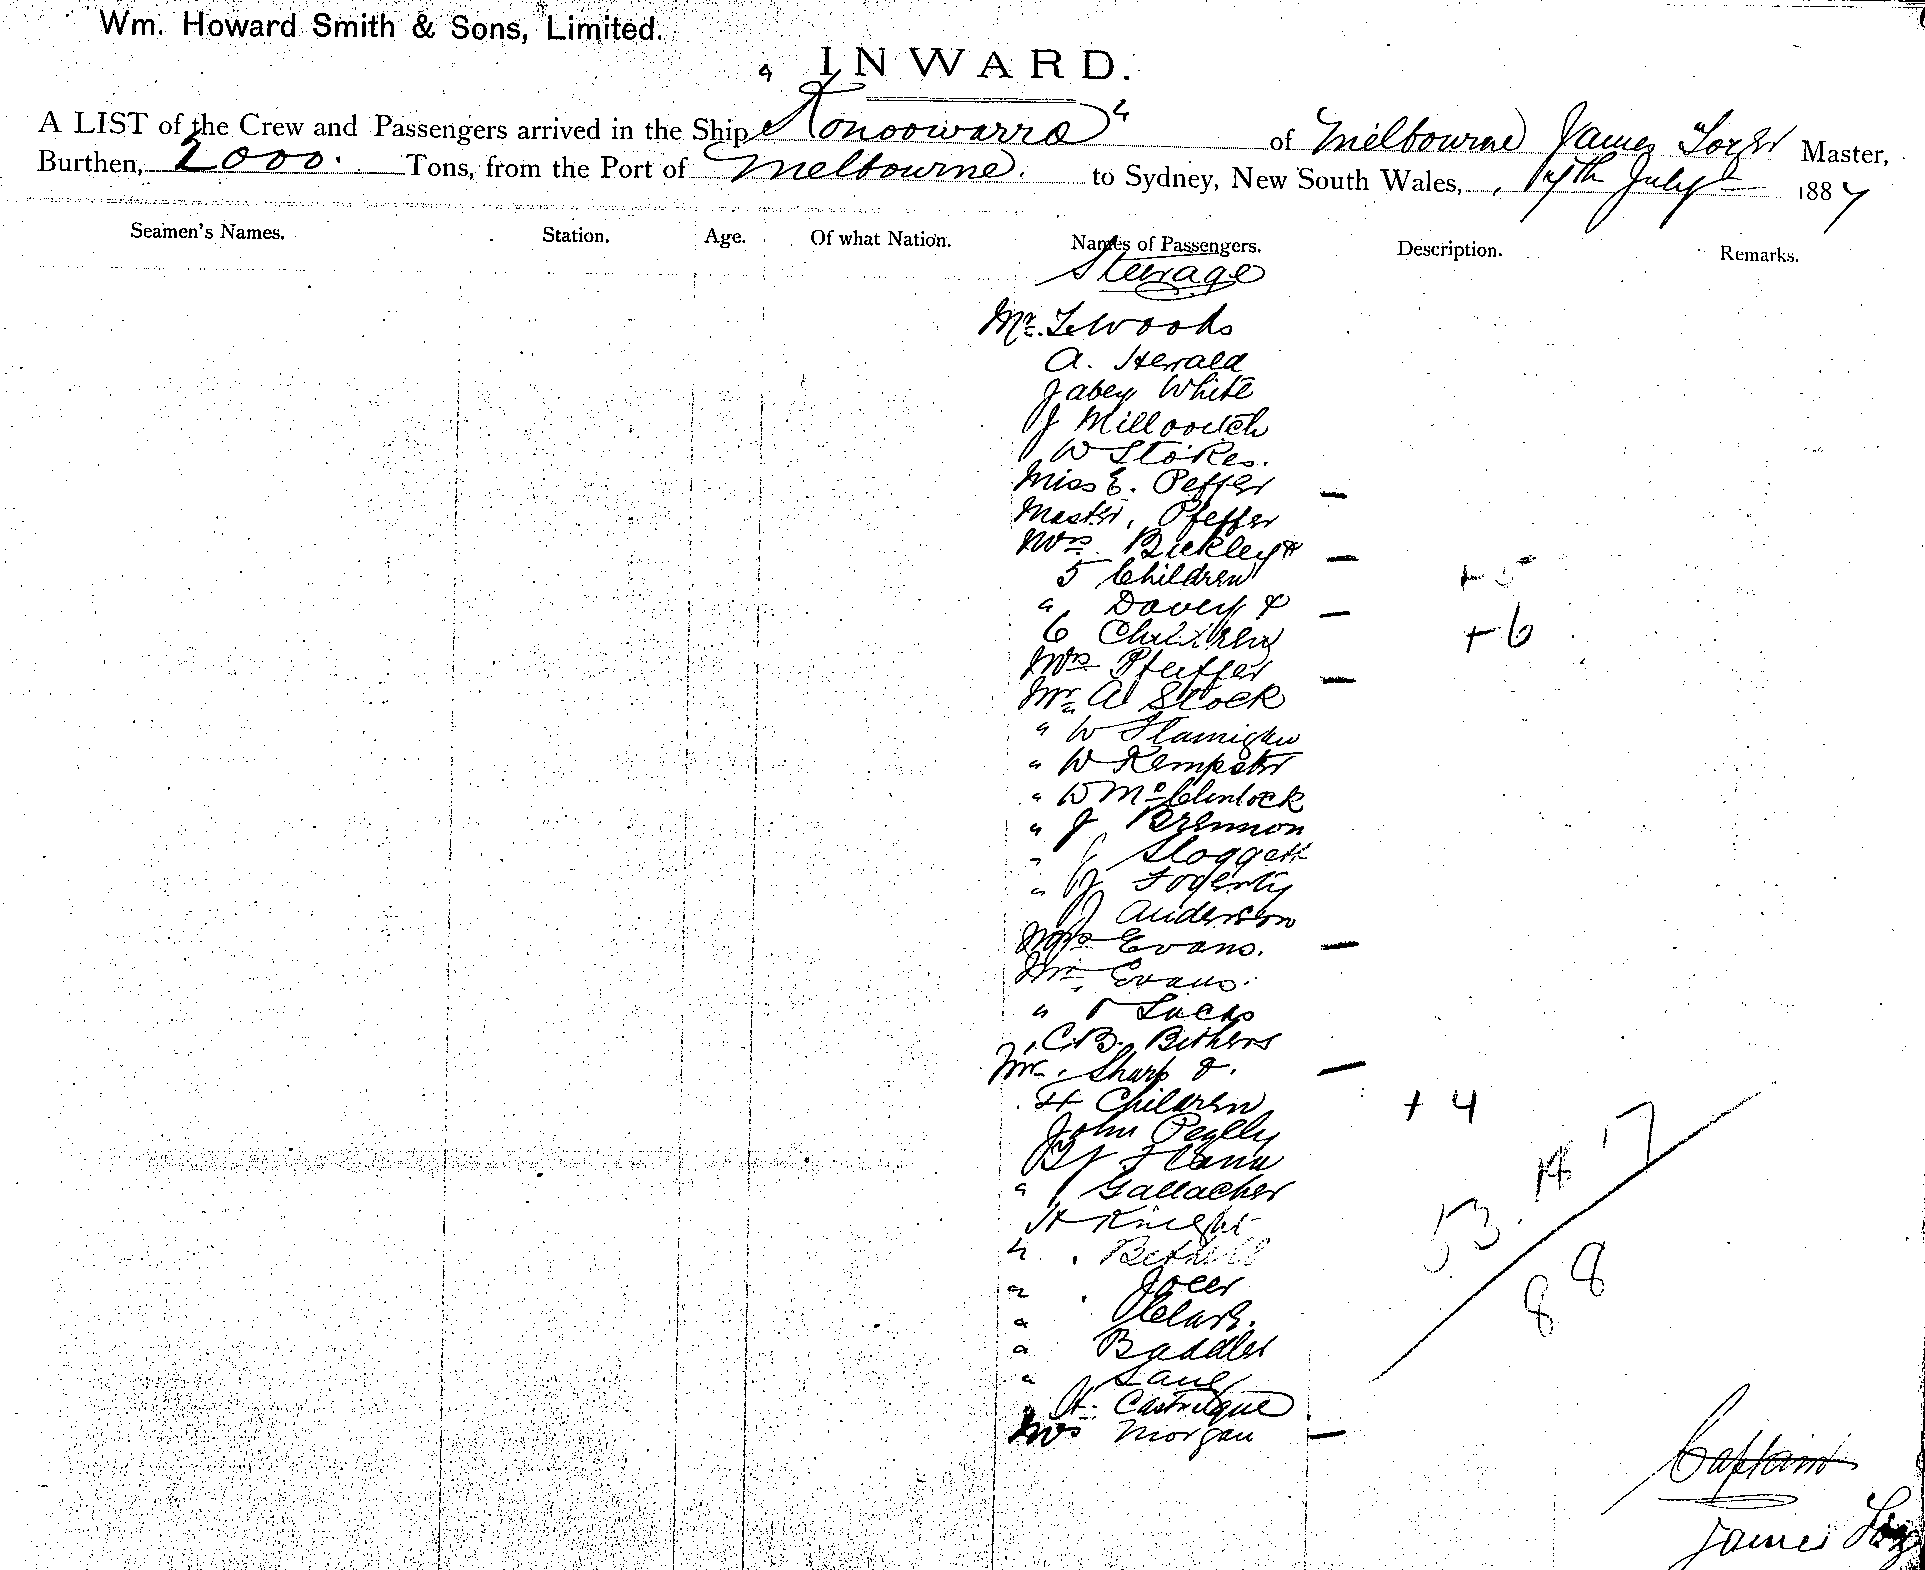 Wm. Howard Smith & Sons, Limited.
" INWARD.
A LIST of the Crew and Passengers arrived in the Ship Konoowarra " of Melbourne James Tozer Master,
Burthen, 2000. Tons, from the Port of Melbourne. to Sydney, New South Wales, 17th July 1887
Seamen's Names. Station. Age. Of what Nation. Names of Passengers. Description. Remarks.
Steerage
Mr.
A. Herald
Jabez White
J Millovitch
W Stokes.
Miss E. Peffer —
Master, Pfeffer
Mrs Bickley & —
5 Children + 5
" Davey & —
6 Children + 6
Mrs Pfeiffer —
Mr A Stock
" W
" W Kempster
" W McClintock
" J Brennon
" J Sloggett
" J Fogerty
J Anderson
Mrs Evans. —
Mr Evans.
"
C.B. Bithers
Mr. Sharp & . —
4 Children + 4
John
Gallacher
H Knight
" . Bethell
"
" Clark.
" Baddler
" Lang
H. Castrique
Mrs Morgan —
53. 14 17
88
Captain
James